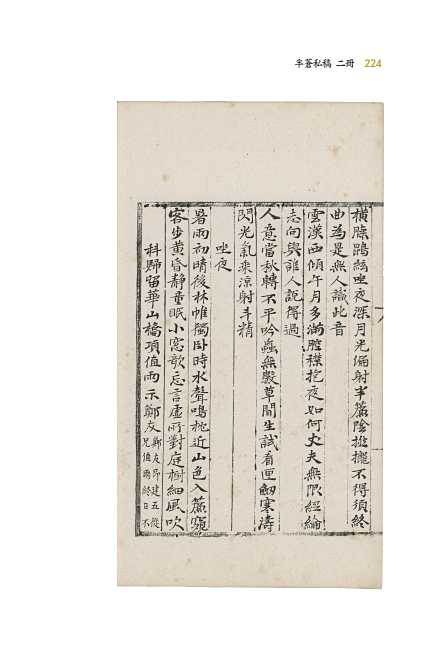 半蒼私稿 二冊 224
橫膝鵾絃坐夜深月光偏射半簾陰推擺不得須終
曲為是無人識此音
雲漢西傾午月多滿腔襟抱夜如何丈夫無限經綸
志向與誰人說得過
人意當秋轉不平吟蟲無數草間生試看匣劒寒濤
閃光氣來凉射斗精
坐夜
暑雨初晴後林帷獨卧時水聲鳴枕近山色入簾窺
客步黃昏靜童眠小窓歌忘言虛所對庭樹細風吹
科歸留華山橋項值雨示鄭友
鄭友昂建五從
兄值雨終日不